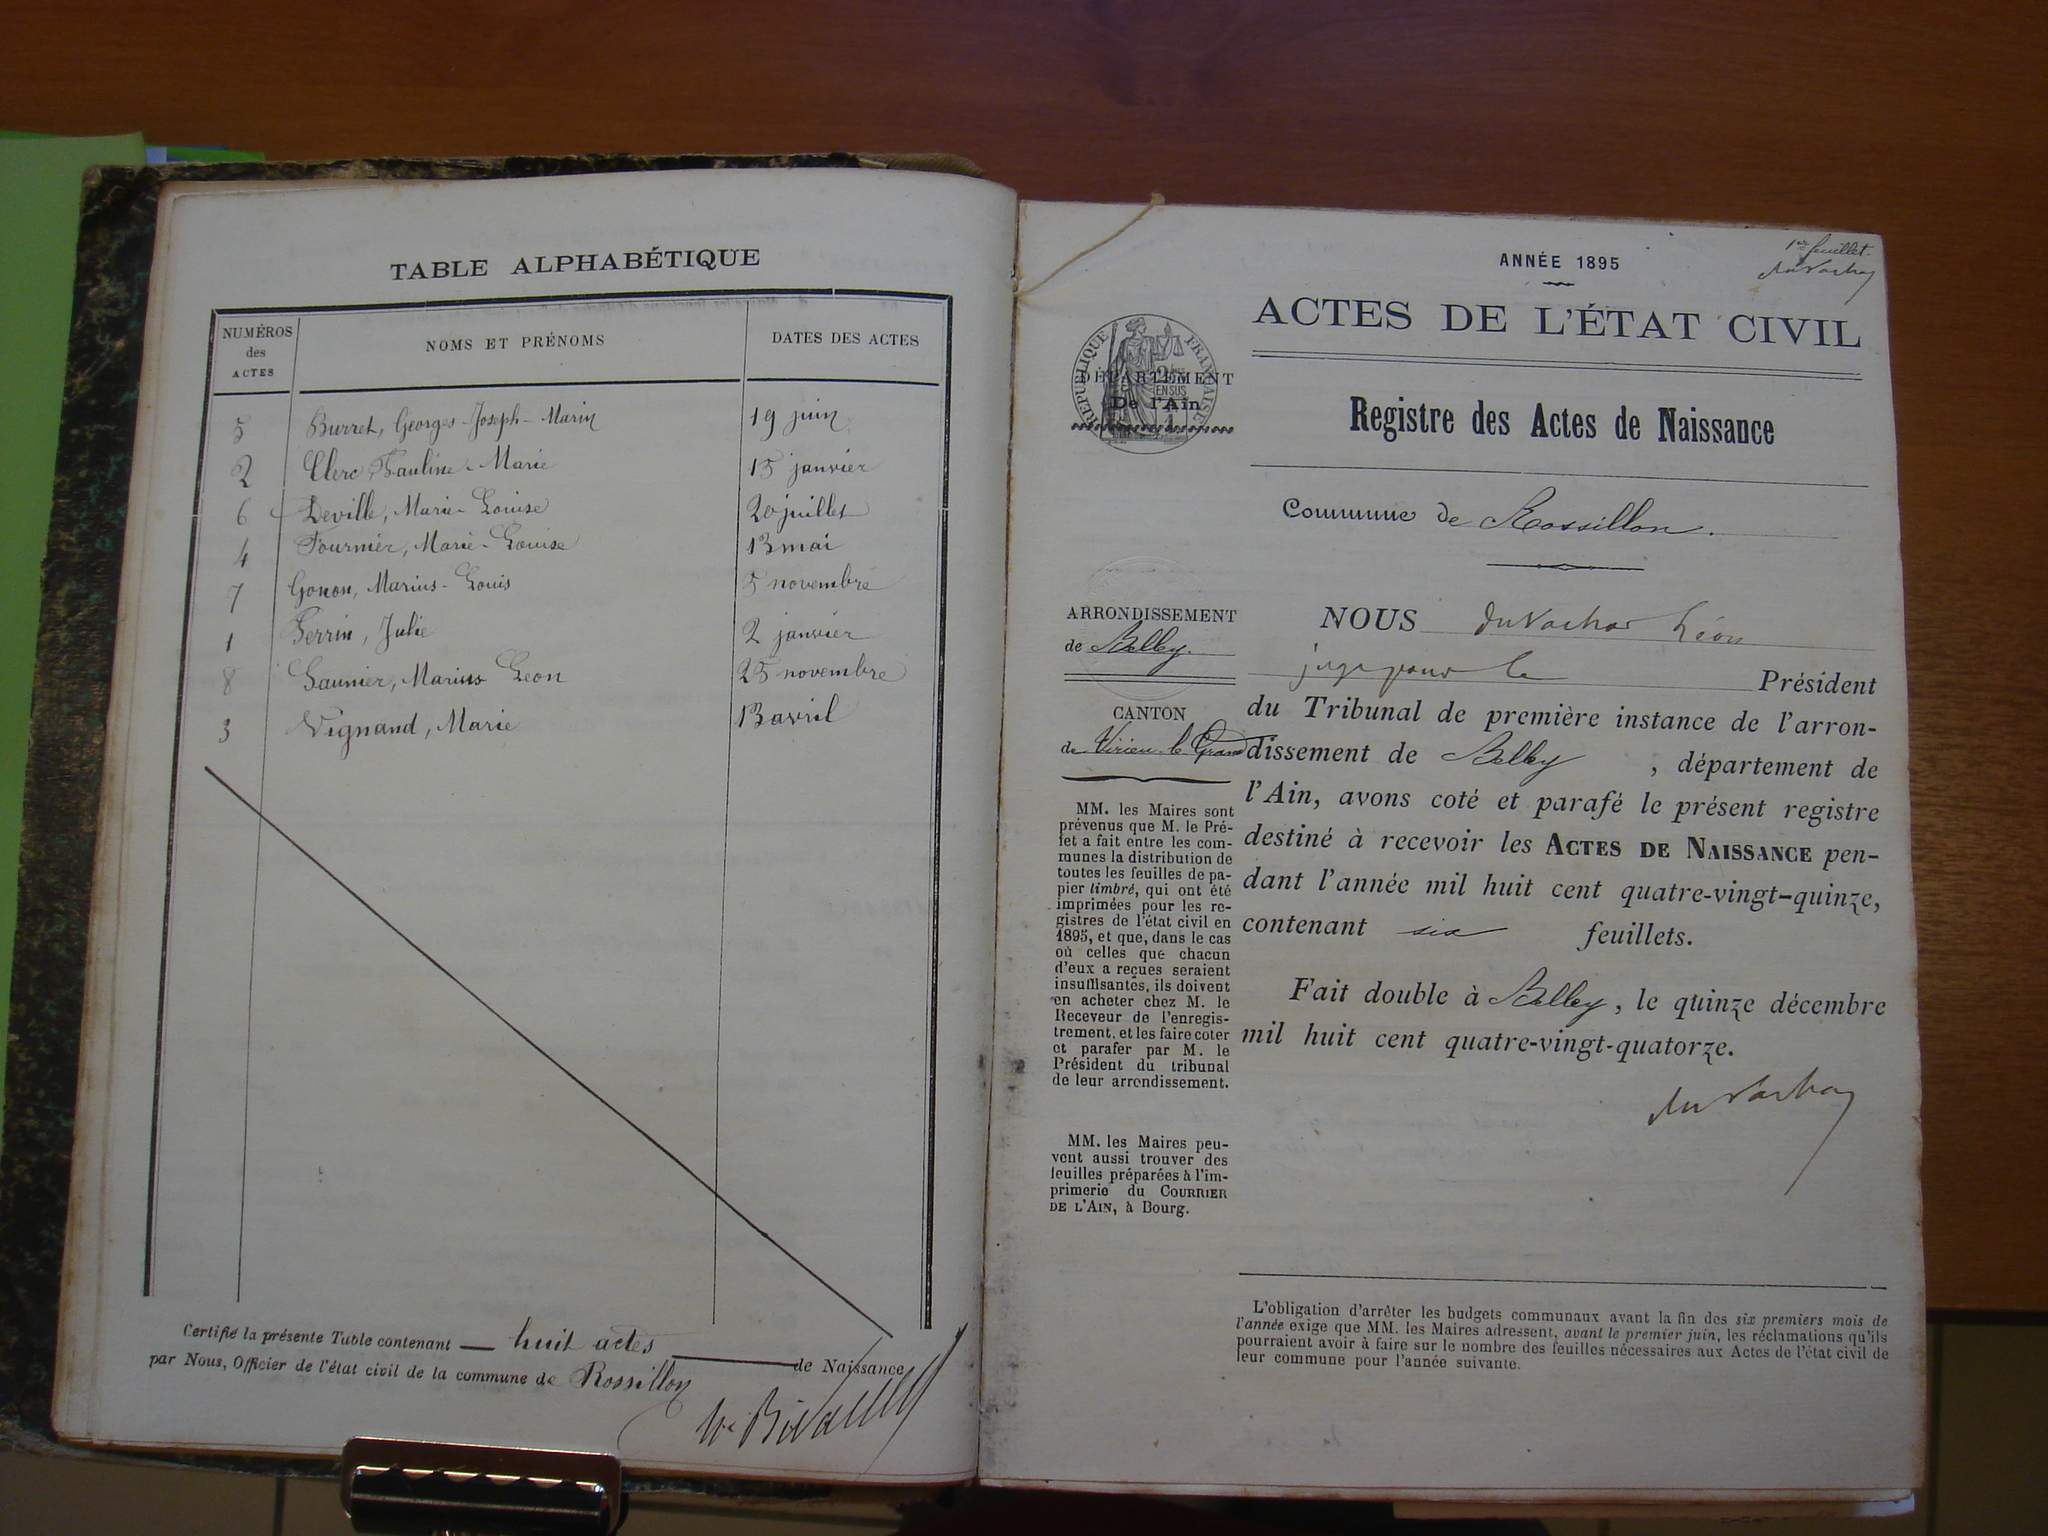 TABLE ALPHABÉTIQUE
NUMÉROS des ACTES
NOMS ET PRÉNOMS
DATES DES ACTES
5 Burret, Georges-Joseph-Marin 19 juin
2 Clerc Pauline-Marie 15 janvier
6 Deville, Marie-Louise 20 juillet
4 Fournier, Marie-Louise 13 mai
7 Gonon, Marius-Louis 5 novembre
1 Perrin, Julie 2 janvier
8 Saunier, Marius Leon 25 novembre
3 Vignand, Marie 13 avril
Certifié la présente Table contenant — huit actes — de Naissance
par Nous, Officier de l'état civil de la commune de Rossillon
1er feuillet.
ANNÉE 1895
ACTES DE L'ÉTAT CIVIL
RÉPUBLIQUE FRANÇAISE
DÉPARTEMENT
De l'Ain
Registre des Actes de Naissance
Commune de Rossillon.
ARRONDISSEMENT
de Belley.
CANTON
de Virieu-le-Grand
MM. les Maires sont
prévenus que M. le Pré-
fet a fait entre les com-
munes la distribution de
toutes les feuilles de pa-
pier timbré, qui ont été
imprimées pour les re-
gistres de l'état civil en
1895, et que, dans le cas
où celles que chacun
d'eux a reçues seraient
insuffisantes, ils doivent
en acheter chez M. le
Receveur de l'enregis-
trement, et les faire coter
et parafer par M. le
Président du tribunal
de leur arrondissement.
MM. les Maires peu-
vent aussi trouver des
feuilles préparées à l'im-
primerie du COURRIER
DE L'AIN, à Bourg.
NOUS Léon
juge pour le Président
du Tribunal de première instance de l'arron-
dissement de Belley, département de
l'Ain, avons coté et parafé le présent registre
destiné à recevoir les ACTES DE NAISSANCE pen-
dant l'année mil huit cent quatre-vingt-quinze,
contenant six feuillets.
Fait double à Belley, le quinze décembre
mil huit cent quatre-vingt-quatorze.
L'obligation d'arrêter les budgets communaux avant la fin des six premiers mois de
l'année exige que MM. les Maires adressent, avant le premier juin, les réclamations qu'ils
pourraient avoir à faire sur le nombre des feuilles nécessaires aux Actes de l'état civil de
leur commune pour l'année suivante.